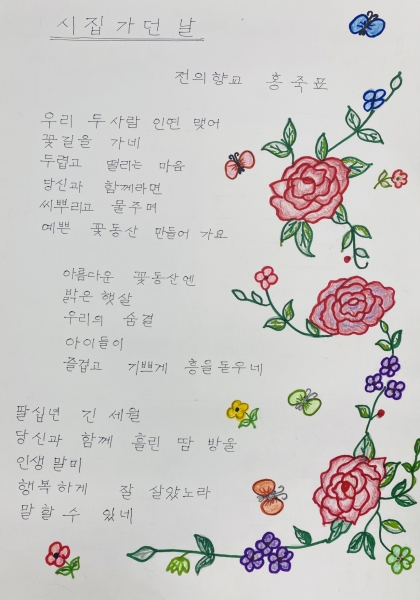 시집 가던 날
전의향교 홍죽표
우리 두사람 인연 맺어
꽃길을 가네
두렵고 떨리는 마음
당신과 함께라면
씨뿌리고 물주며
예쁜 꽃동산 만들어 가요
아름다운 꽃동산엔
밝은 햇살
우리의 숨결
아이들이
즐겁고 기쁘게 흥을 돋우네
팔십년 긴 세월
당신과 함께 흘린 땀 방울
인생 말미
행복하게 잘 살았노라
말 할 수 있네